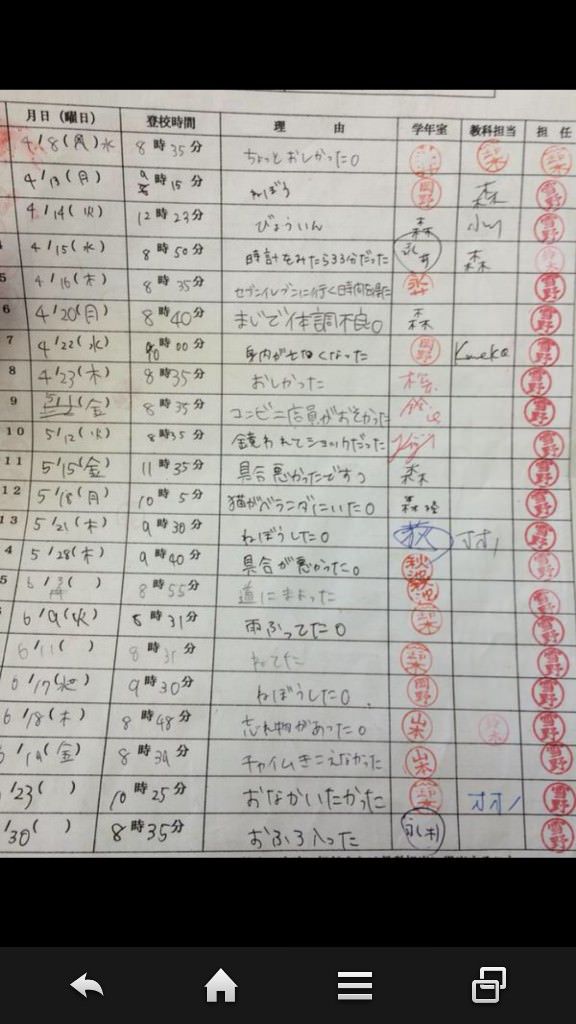 月日（曜日） 登校時間 理由 学年室 教科担当 担任
4/8(月)水 8時35分 ちょっとおしかった。
4/13(月) 9時15分 ねぼう 岡野 森 雪野
4/14(火) 12時23分 びょういん 森 小川 雪野
4/15(水) 8時50分 時計をみたら33分だった 永井 森
5 4/16(木) 8時35分 セブンイレブンに行く時間を 永井 雪野
6 4/20(月) 8時40分 まじで体調不良。 森 雪野
7 4/22(水) 00分 身内が亡くなった 岡野 Kaneko 雪野
8 4/23(木) 8時35分 おしかった 雪野
9 (金) 8時35分 コンビニ店員がおそかった 雪野
10 5/12(火) 8時35分 鏡われてショックだった 雪野
11 5/15(金) 11時35分 具合悪かったですっ 森 雪野
12 5/18(月) 10時5分 猫がベランダにいた。 雪野
13 5/21(木) 9時30分 ねぼうした。 荻 オオノ 雪野
4 5/28(木) 9時40分 具合が悪かった。 雪野
5 6/3( ) 8時55分 道にまよった 雪野
6/9(火) 8時31分 雨ふってた。 雪野
6/11( ) 8時31分 ねてた 雪野
6/17(水) 9時30分 ねぼうした。 岡野 雪野
6/18(木) 8時48分 忘れ物があった。 山本 鈴木 雪野
6/19(金) 8時39分 チャイムきこえなかった 山本 雪野
/23( ) 10時25分 おなかいたかった オオノ 雪野
/30( ) 8時35分 おふろ入った 雪野